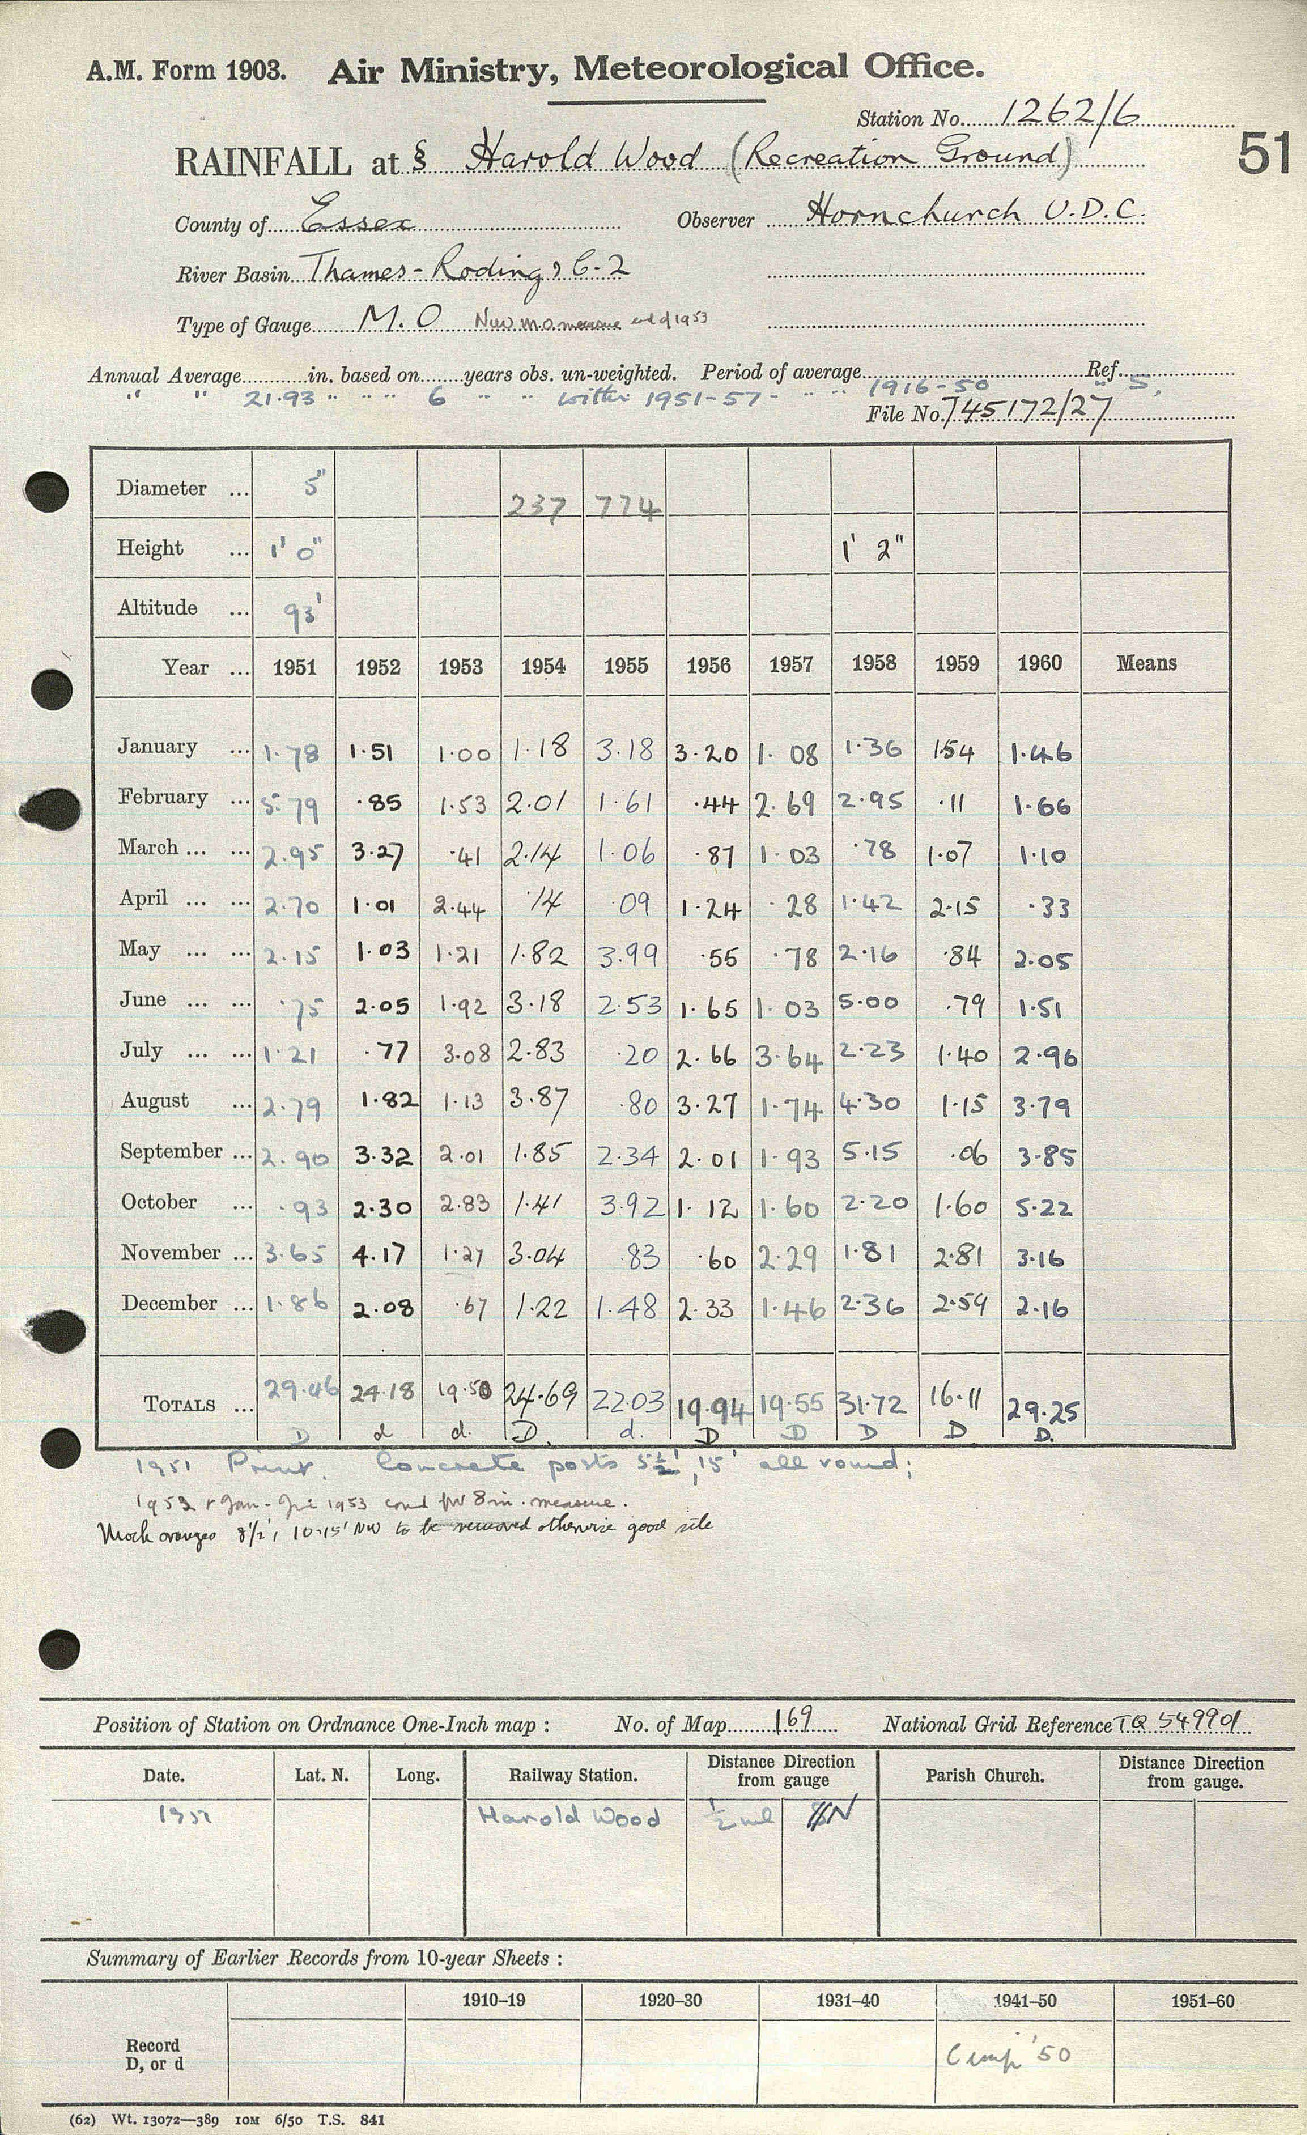 A.M. Form 1903. Air Ministry, Meteorological Office.
Station No. 1262/6
51
RAINFALL at § Harold Wood (Recreation Ground)
County of Essex Observer Hornchurch U.D.C.
River Basin Thames-Roding & 6-2
Type of Gauge M.O New m.o. measure end of 1953
Annual Average in. based on years obs. un-weighted. Period of average Ref.
" " 21.93 " " " 6 " " within 1951-57- " " 1916-50 " 5.
File No. 745172/27
Diameter ... 5" 237 774
Height ... 1' 0" 1' 2"
Altitude ... 93'
Year ... 1951 1952 1953 1954 1955 1956 1957 1958 1959 1960 Means
January ... 1.78 1.51 1.00 1.18 3.18 3.20 1.08 1.36 1.54 1.46
February ... 5.79 .85 1.53 2.01 1.61 .44 2.69 2.95 .11 1.66
March ... ... 2.95 3.27 .41 2.14 1.06 .87 1.03 .78 1.07 1.10
April ... ... 2.70 1.01 2.44 .14 .09 1.24 .28 1.42 2.15 .33
May ... ... 2.15 1.03 1.21 1.82 3.99 .55 .78 2.16 .84 2.05
June ... ... .75 2.05 1.92 3.18 2.53 1.65 1.03 5.00 .79 1.51
July ... ... 1.21 .77 3.08 2.83 .20 2.66 3.64 2.23 1.40 2.96
August ... 2.79 1.82 1.13 3.87 .80 3.27 1.74 4.30 1.15 3.79
September ... 2.90 3.32 2.01 1.85 2.34 2.01 1.93 5.15 .06 3.85
October ... .93 2.30 2.83 1.41 3.92 1.12 1.60 2.20 1.60 5.22
November ... 3.65 4.17 1.27 3.04 .83 .60 2.29 1.81 2.81 3.16
December ... 1.86 2.08 .67 1.22 1.48 2.33 1.46 2.36 2.59 2.16
TOTALS ... 29.46 24.18 19.50 24.69 22.03 19.94 19.55 31.72 16.11 29.25
D d d. D. d. D D D D D.
1951 Print. Concrete posts 5½', 15' all round;
1952 & Jan - 1953 for 8in. measure.
Mock oranges 8½', 10-15' NW to be removed otherwise good site
Position of Station on Ordnance One-Inch map : No. of Map 169 National Grid Reference TQ 549901
Date. Lat. N. Long. Railway Station. Distance Direction from gauge Parish Church. Distance Direction from gauge.
1951 Harold Wood ½ ml N
Summary of Earlier Records from 10-year Sheets :
1910–19 1920–30 1931–40 1941–50 1951–60
Record D, or d '50
(62) Wt. 13072—389 10M 6/50 T.S. 841